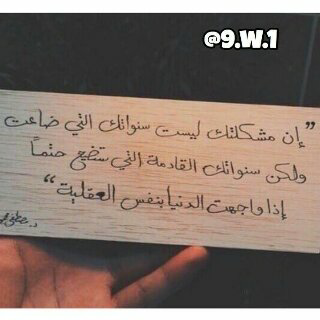 @9.W.1
”إن مشكلتك ليست سنواتك التي ضاعت
ولكن سنواتك القادمة التي ستضيع حتماً
إذا واجهت الدنيا بنفس العقلية“
د. مصطفى